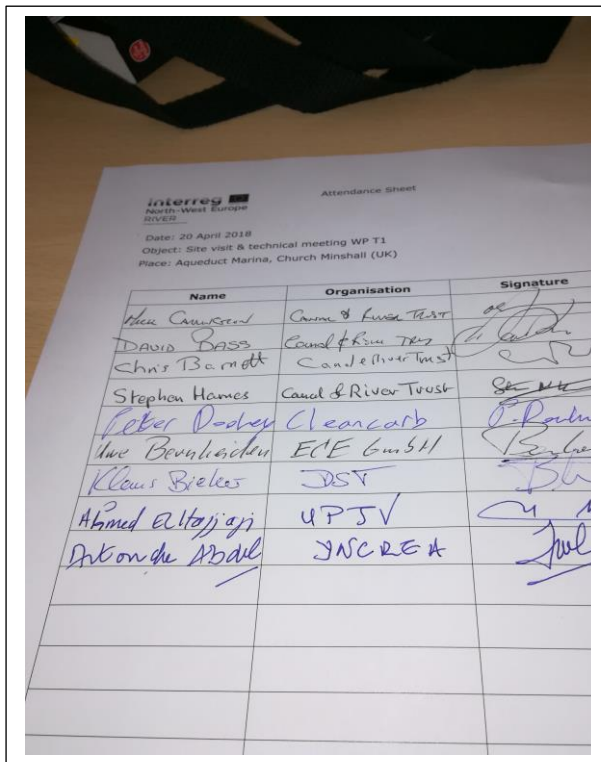 Interreg
North-West Europe
RIVER
Attendance Sheet
Date: 20 April 2018
Object: Site visit & technical meeting WP T1
Place: Aqueduct Marina, Church Minshall (UK)
Name Organisation Signature
Canal & River Trust
DAVID BASS Canal & River Trust
Chris Barnett Canal & River Trust
Stephen Hames Canal & River Trust
Peter Cleancarb
Uwe ECE GmbH
Klaus Bieker DST
Ahmed Elhajjaji UPJV
Abdel YNCREA